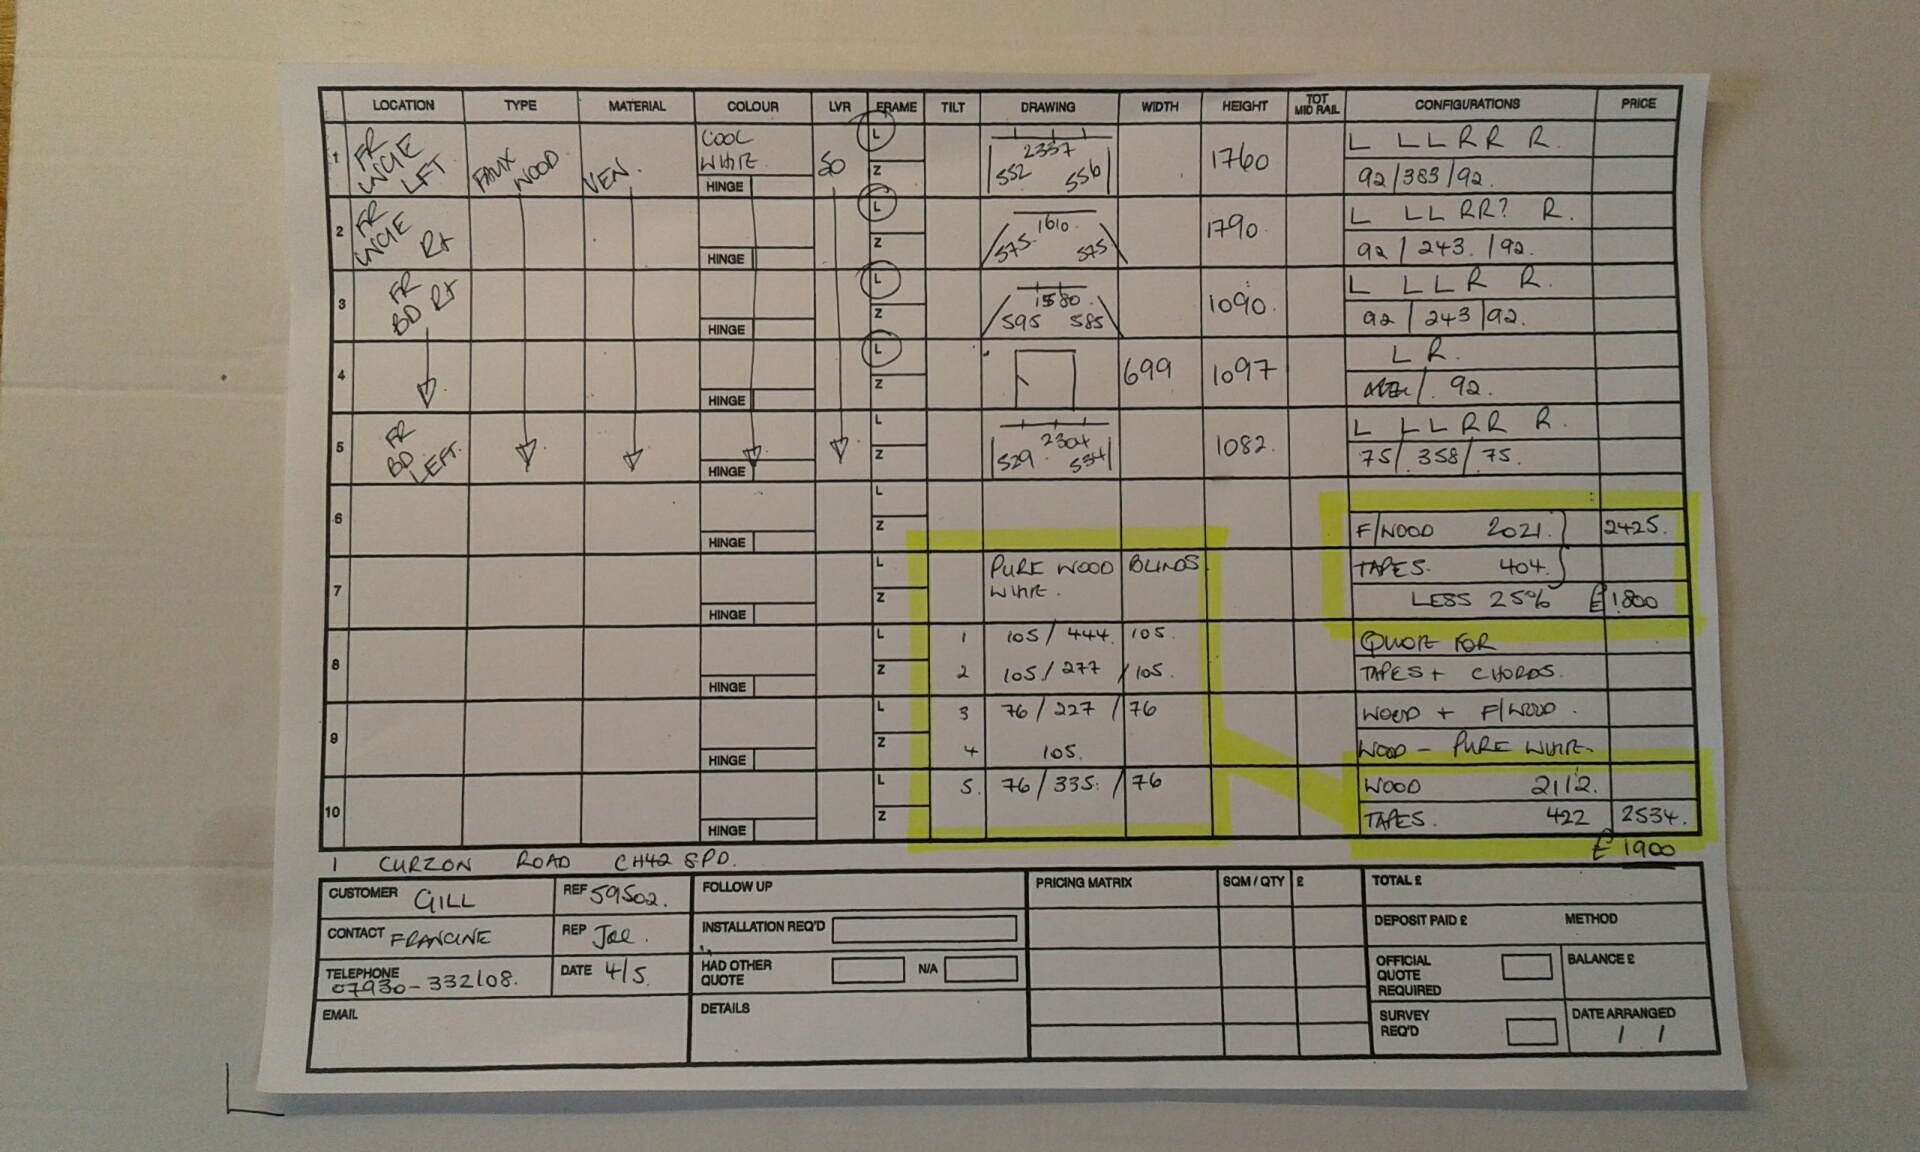 LOCATION TYPE MATERIAL COLOUR LVR FRAME TILT DRAWING WIDTH HEIGHT TOT MID RAIL CONFIGURATIONS PRICE
1 FR LNGIE LFT FAUX WOOD VEN. COOL WHITE. HINGE 50 L Z 2337 552 556 1760 L LL RR R.
92/383/92.
2 FR LNGIE Rt HINGE L Z 1610 575 575 1790 L LL RR? R.
92/243./92.
3 FR BD Rt HINGE L Z 1580. 595 585 1090. L LLR R.
92/243/92.
4 HINGE L Z 699 1097 L R.
/. 92.
5 FR BD LEFT. HINGE L Z 2304 529 534 1082. L LL RR R.
75/.358/75.
6 HINGE L Z F/WOOD 2021. 2425.
7 HINGE L Z PURE WOOD BLINDS WHITE. TAPES. 404.
LESS 25% £1800
8 HINGE L Z 1 105/444 105. QUOTE FOR
2 105/277/105. TAPES + CHORDS.
9 HINGE L Z 3 76/227/76 WOOD + F/WOOD.
4 105. WOOD - PURE WHITE.
10 HINGE L Z 5. 76/335./76 WOOD 2112.
TAPES. 422 2534.
£1900
1 CURZON ROAD CH42 8PD.
CUSTOMER GILL REF 59502. FOLLOW UP PRICING MATRIX SQM / QTY £ TOTAL £
CONTACT FRANCINE REP Joe. INSTALLATION REQ'D DEPOSIT PAID £ METHOD
TELEPHONE 07930-332108. DATE 4/5. HAD OTHER QUOTE N/A OFFICIAL QUOTE REQUIRED BALANCE £
EMAIL DETAILS SURVEY REQ'D DATE ARRANGED / /